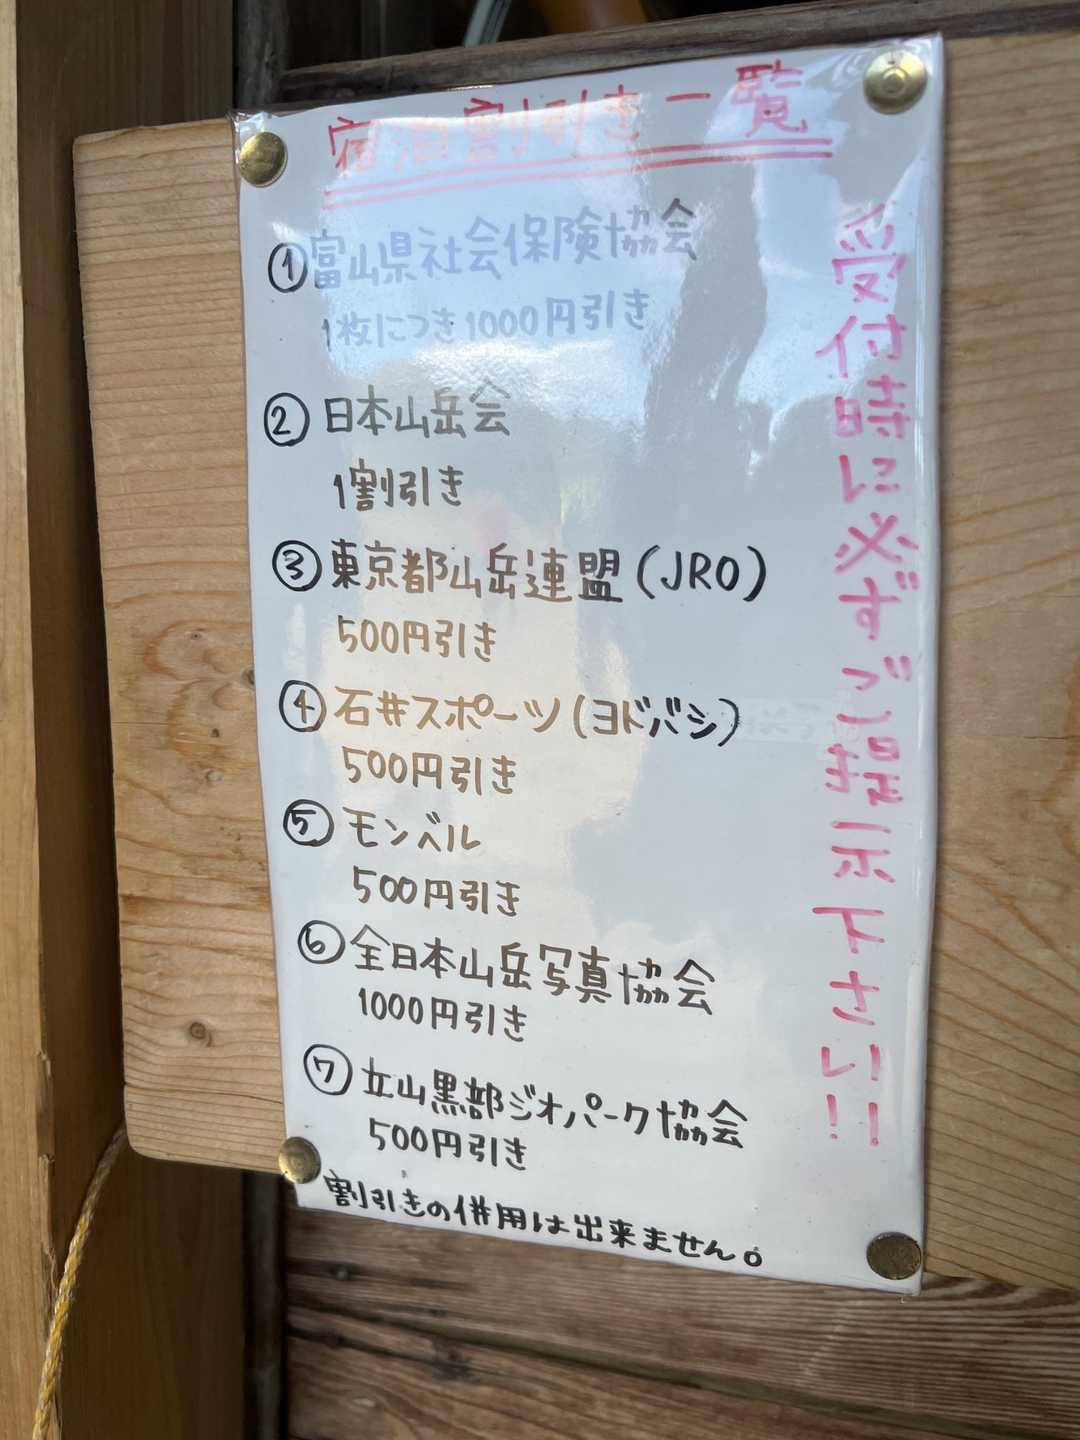 宿泊割引き一覧
①富山県社会保険協会
1枚につき1000円引き
②日本山岳会
1割引き
③東京都山岳連盟(JRO)
500円引き
④石井スポーツ(ヨドバシ)
500円引き
⑤モンベル
500円引き
⑥全日本山岳写真協会
1000円引き
⑦立山黒部ジオパーク協会
500円引き
割引きの併用は出来ません。
受付時に必ずご提示下さい!!